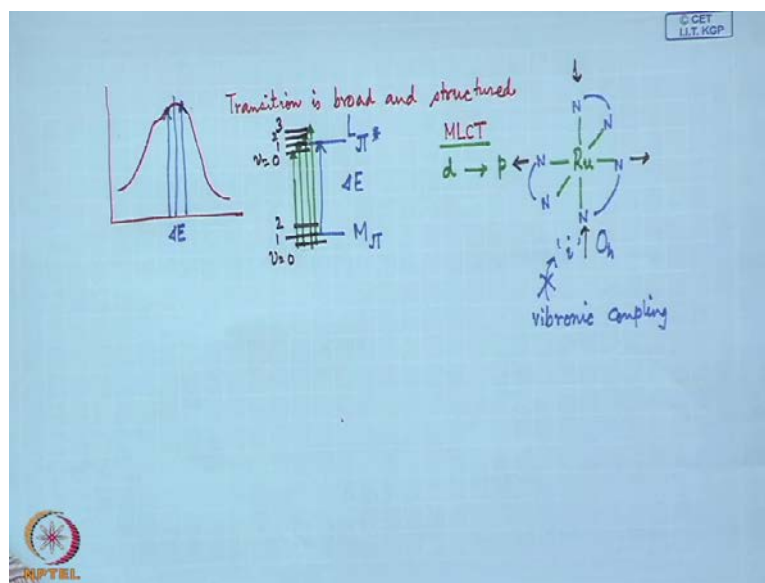 © CET
I.I.T. KGP
Transition is broad and structured
3
2
1
v=0
L π*
ΔE
2
1
v=0
M π
ΔE
MLCT
d → p
N
N
N Ru N
N
N
N
'i' Oh
vibronic coupling
NPTEL